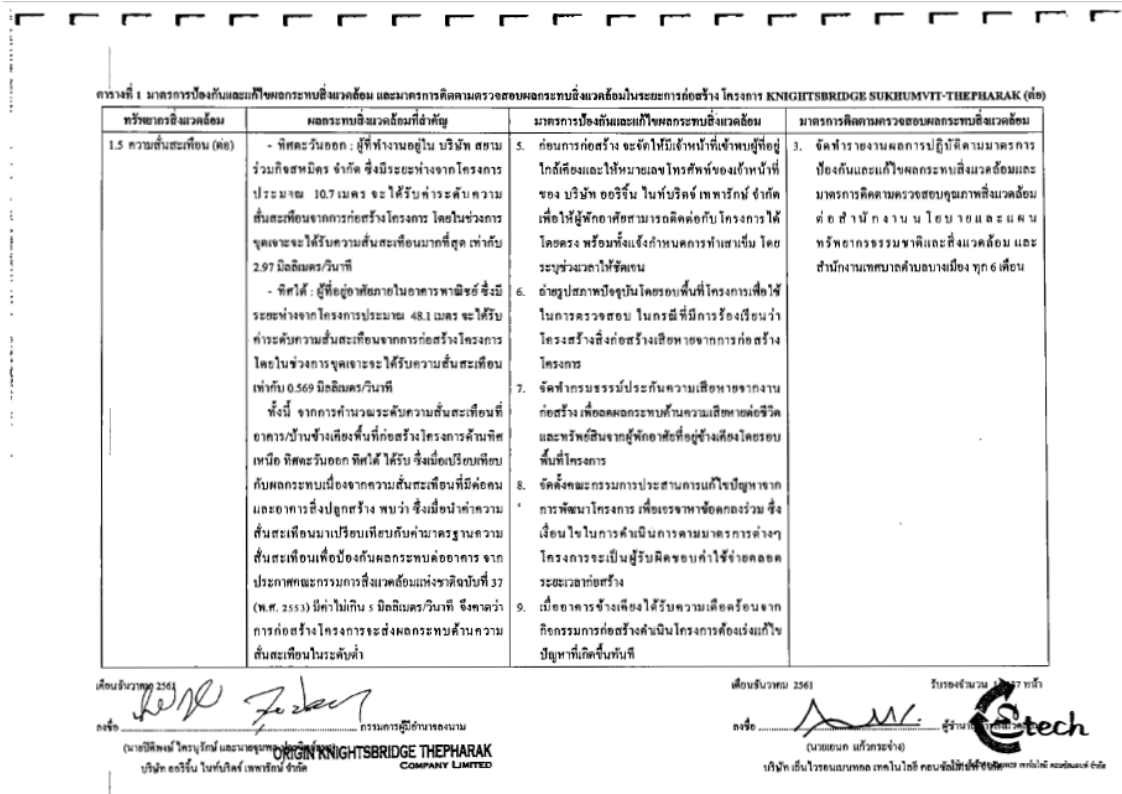 ตารางที่ 1 มาตรการป้องกันและแก้ไขผลกระทบสิ่งแวดล้อม และมาตรการติดตามตรวจสอบผลกระทบสิ่งแวดล้อมในระยะการก่อสร้าง โครงการ KNIGHTSBRIDGE SUKHUMVIT-THEPHARAK (ต่อ)
ทรัพยากรสิ่งแวดล้อม
ผลกระทบสิ่งแวดล้อมที่สำคัญ
มาตรการป้องกันและแก้ไขผลกระทบสิ่งแวดล้อม
มาตรการติดตามตรวจสอบผลกระทบสิ่งแวดล้อม
1.5 ความสั่นสะเทือน (ต่อ)
- ทิศตะวันออก : ผู้ที่ทำงานอยู่ใน บริษัท สยาม
ร่วมกิจสหมิตร จำกัด ซึ่งมีระยะห่างจากโครงการ
ประมาณ 10.7 เมตร จะได้รับค่าระดับความ
สั่นสะเทือนจากการก่อสร้างโครงการ โดยในช่วงการ
ขุดเจาะจะได้รับความสั่นสะเทือนมากที่สุด เท่ากับ
2.97 มิลลิเมตร/วินาที
- ทิศใต้ : ผู้ที่อยู่อาศัยภายในอาคารพาณิชย์ ซึ่งมี
ระยะห่างจากโครงการประมาณ 48.1 เมตร จะได้รับ
ค่าระดับความสั่นสะเทือนจากการก่อสร้างโครงการ
โดยในช่วงการขุดเจาะจะได้รับความสั่นสะเทือน
เท่ากับ 0.569 มิลลิเมตร/วินาที
ทั้งนี้ จากการคำนวณระดับความสั่นสะเทือนที่
อาคาร/บ้านข้างเคียงพื้นที่ก่อสร้างโครงการด้านทิศ
เหนือ ทิศตะวันออก ทิศใต้ ได้รับ ซึ่งเมื่อเปรียบเทียบ
กับผลกระทบเนื่องจากความสั่นสะเทือนที่มีต่อคน
และอาคารสิ่งปลูกสร้าง พบว่า ซึ่งเมื่อนำค่าความ
สั่นสะเทือนมาเปรียบเทียบกับค่ามาตรฐานความ
สั่นสะเทือนเพื่อป้องกันผลกระทบต่ออาคาร จาก
ประกาศคณะกรรมการสิ่งแวดล้อมแห่งชาติฉบับที่ 37
(พ.ศ. 2553) มีค่าไม่เกิน 5 มิลลิเมตร/วินาที จึงคาดว่า
การก่อสร้างโครงการจะส่งผลกระทบด้านความ
สั่นสะเทือนในระดับต่ำ
5. ก่อนการก่อสร้าง จะจัดให้มีเจ้าหน้าที่เข้าพบผู้ที่อยู่
ใกล้เคียงและให้หมายเลขโทรศัพท์ของเจ้าหน้าที่
ของ บริษัท ออริจิ้น ไนท์บริดจ์ เทพารักษ์ จำกัด
เพื่อให้ผู้พักอาศัยสามารถติดต่อกับโครงการได้
โดยตรง พร้อมทั้งแจ้งกำหนดการทำเสาเข็ม โดย
ระบุช่วงเวลาให้ชัดเจน
6. ถ่ายรูปสภาพปัจจุบันโดยรอบพื้นที่โครงการเพื่อใช้
ในการตรวจสอบ ในกรณีที่มีการร้องเรียนว่า
โครงสร้างสิ่งก่อสร้างเสียหายจากการก่อสร้าง
โครงการ
7. จัดทำกรมธรรม์ประกันความเสียหายจากงาน
ก่อสร้าง เพื่อลดผลกระทบด้านความเสียหายต่อชีวิต
และทรัพย์สินจากผู้พักอาศัยที่อยู่ข้างเคียงโดยรอบ
พื้นที่โครงการ
8. จัดตั้งคณะกรรมการประสานการแก้ไขปัญหาจาก
การพัฒนาโครงการ เพื่อเจรจาหาข้อตกลงร่วม ซึ่ง
เงื่อนไขในการดำเนินการตามมาตรการต่างๆ
โครงการจะเป็นผู้รับผิดชอบค่าใช้จ่ายตลอด
ระยะเวลาก่อสร้าง
9. เมื่ออาคารข้างเคียงได้รับความเดือดร้อนจาก
กิจกรรมการก่อสร้างดำเนินโครงการต้องเร่งแก้ไข
ปัญหาที่เกิดขึ้นทันที
3. จัดทำรายงานผลการปฏิบัติตามมาตรการ
ป้องกันและแก้ไขผลกระทบสิ่งแวดล้อมและ
มาตรการติดตามตรวจสอบคุณภาพสิ่งแวดล้อม
ต่อสำนักงานนโยบายและแผน
ทรัพยากรธรรมชาติและสิ่งแวดล้อม และ
สำนักงานเทศบาลตำบลบางเมือง ทุก 6 เดือน
เดือนธันวาคม 2561
ลงชื่อ กรรมการผู้มีอำนาจลงนาม
บริษัท ออริจิ้น ไนท์บริดจ์ เทพารักษ์ จำกัด
ORIGIN KNIGHTSBRIDGE THEPHARAK
COMPANY LIMITED
เดือนธันวาคม 2561
รับรองจำนวน หน้า
ลงชื่อ
(นายเอนก แก้วกระจ่าง)
บริษัท เอ็นไวรอนเมนทอล เทคโนโลยี คอนซัลแทนท์ จำกัด
tech